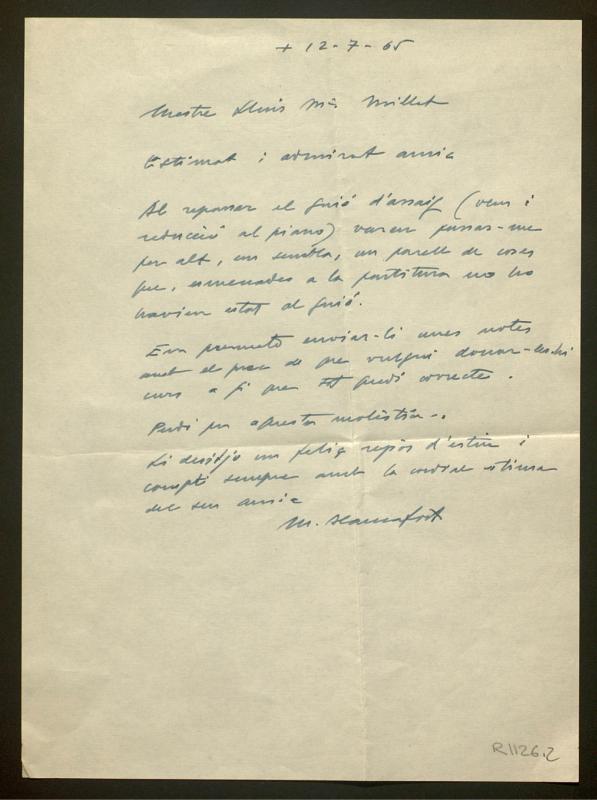 + 12-7-65
Mestre Lluis Mª Millet
Estimat i admirat amic
Al repassar el guió d'assaig (veus i
reducció al piano) varen passar-me
per alt, em sembla, un parell de coses
que, esmenades a la partitura no ho
havien estat al guió.
Em permeto enviar-li unes notes
amb el prec de que vulgui donar-les-hi
curs a fi que tot quedi correcte.
Perdó per aquesta molèstia.
Li desitjo un feliç repòs d'estiu i
compti sempre amb la cordial estima
del seu amic
M. Blancafort
R.1126.2